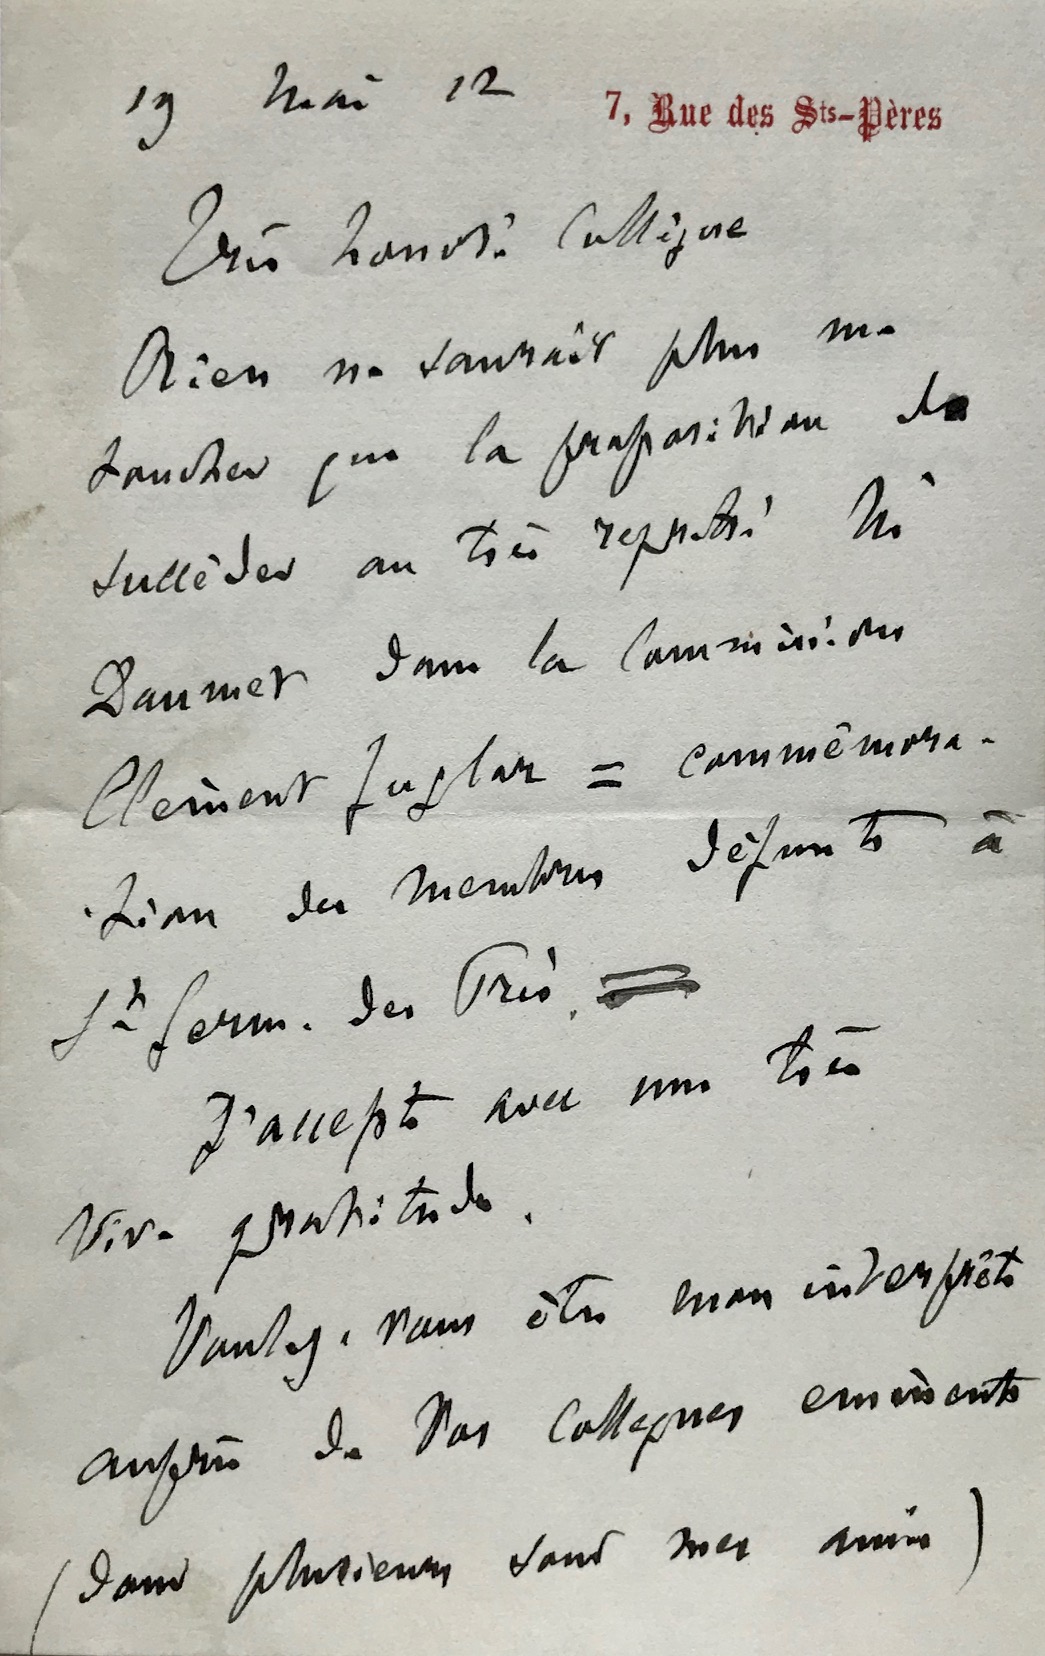 19 Mai 12
7, Rue des Sts-Pères
Très honoré Collègue
Rien ne saurait plus me
toucher que la proposition de
succèder au très regretté Mr
Daumet dans la Commission
Clement Juglar = commémora-
-tion des Membres défunts à
St Germ. des Prés.
J'accepte avec une très
vive gratitude.
Voulez-vous être mon interprète
auprès de vos Collegues eminents
(dont plusieurs sont mes amis)